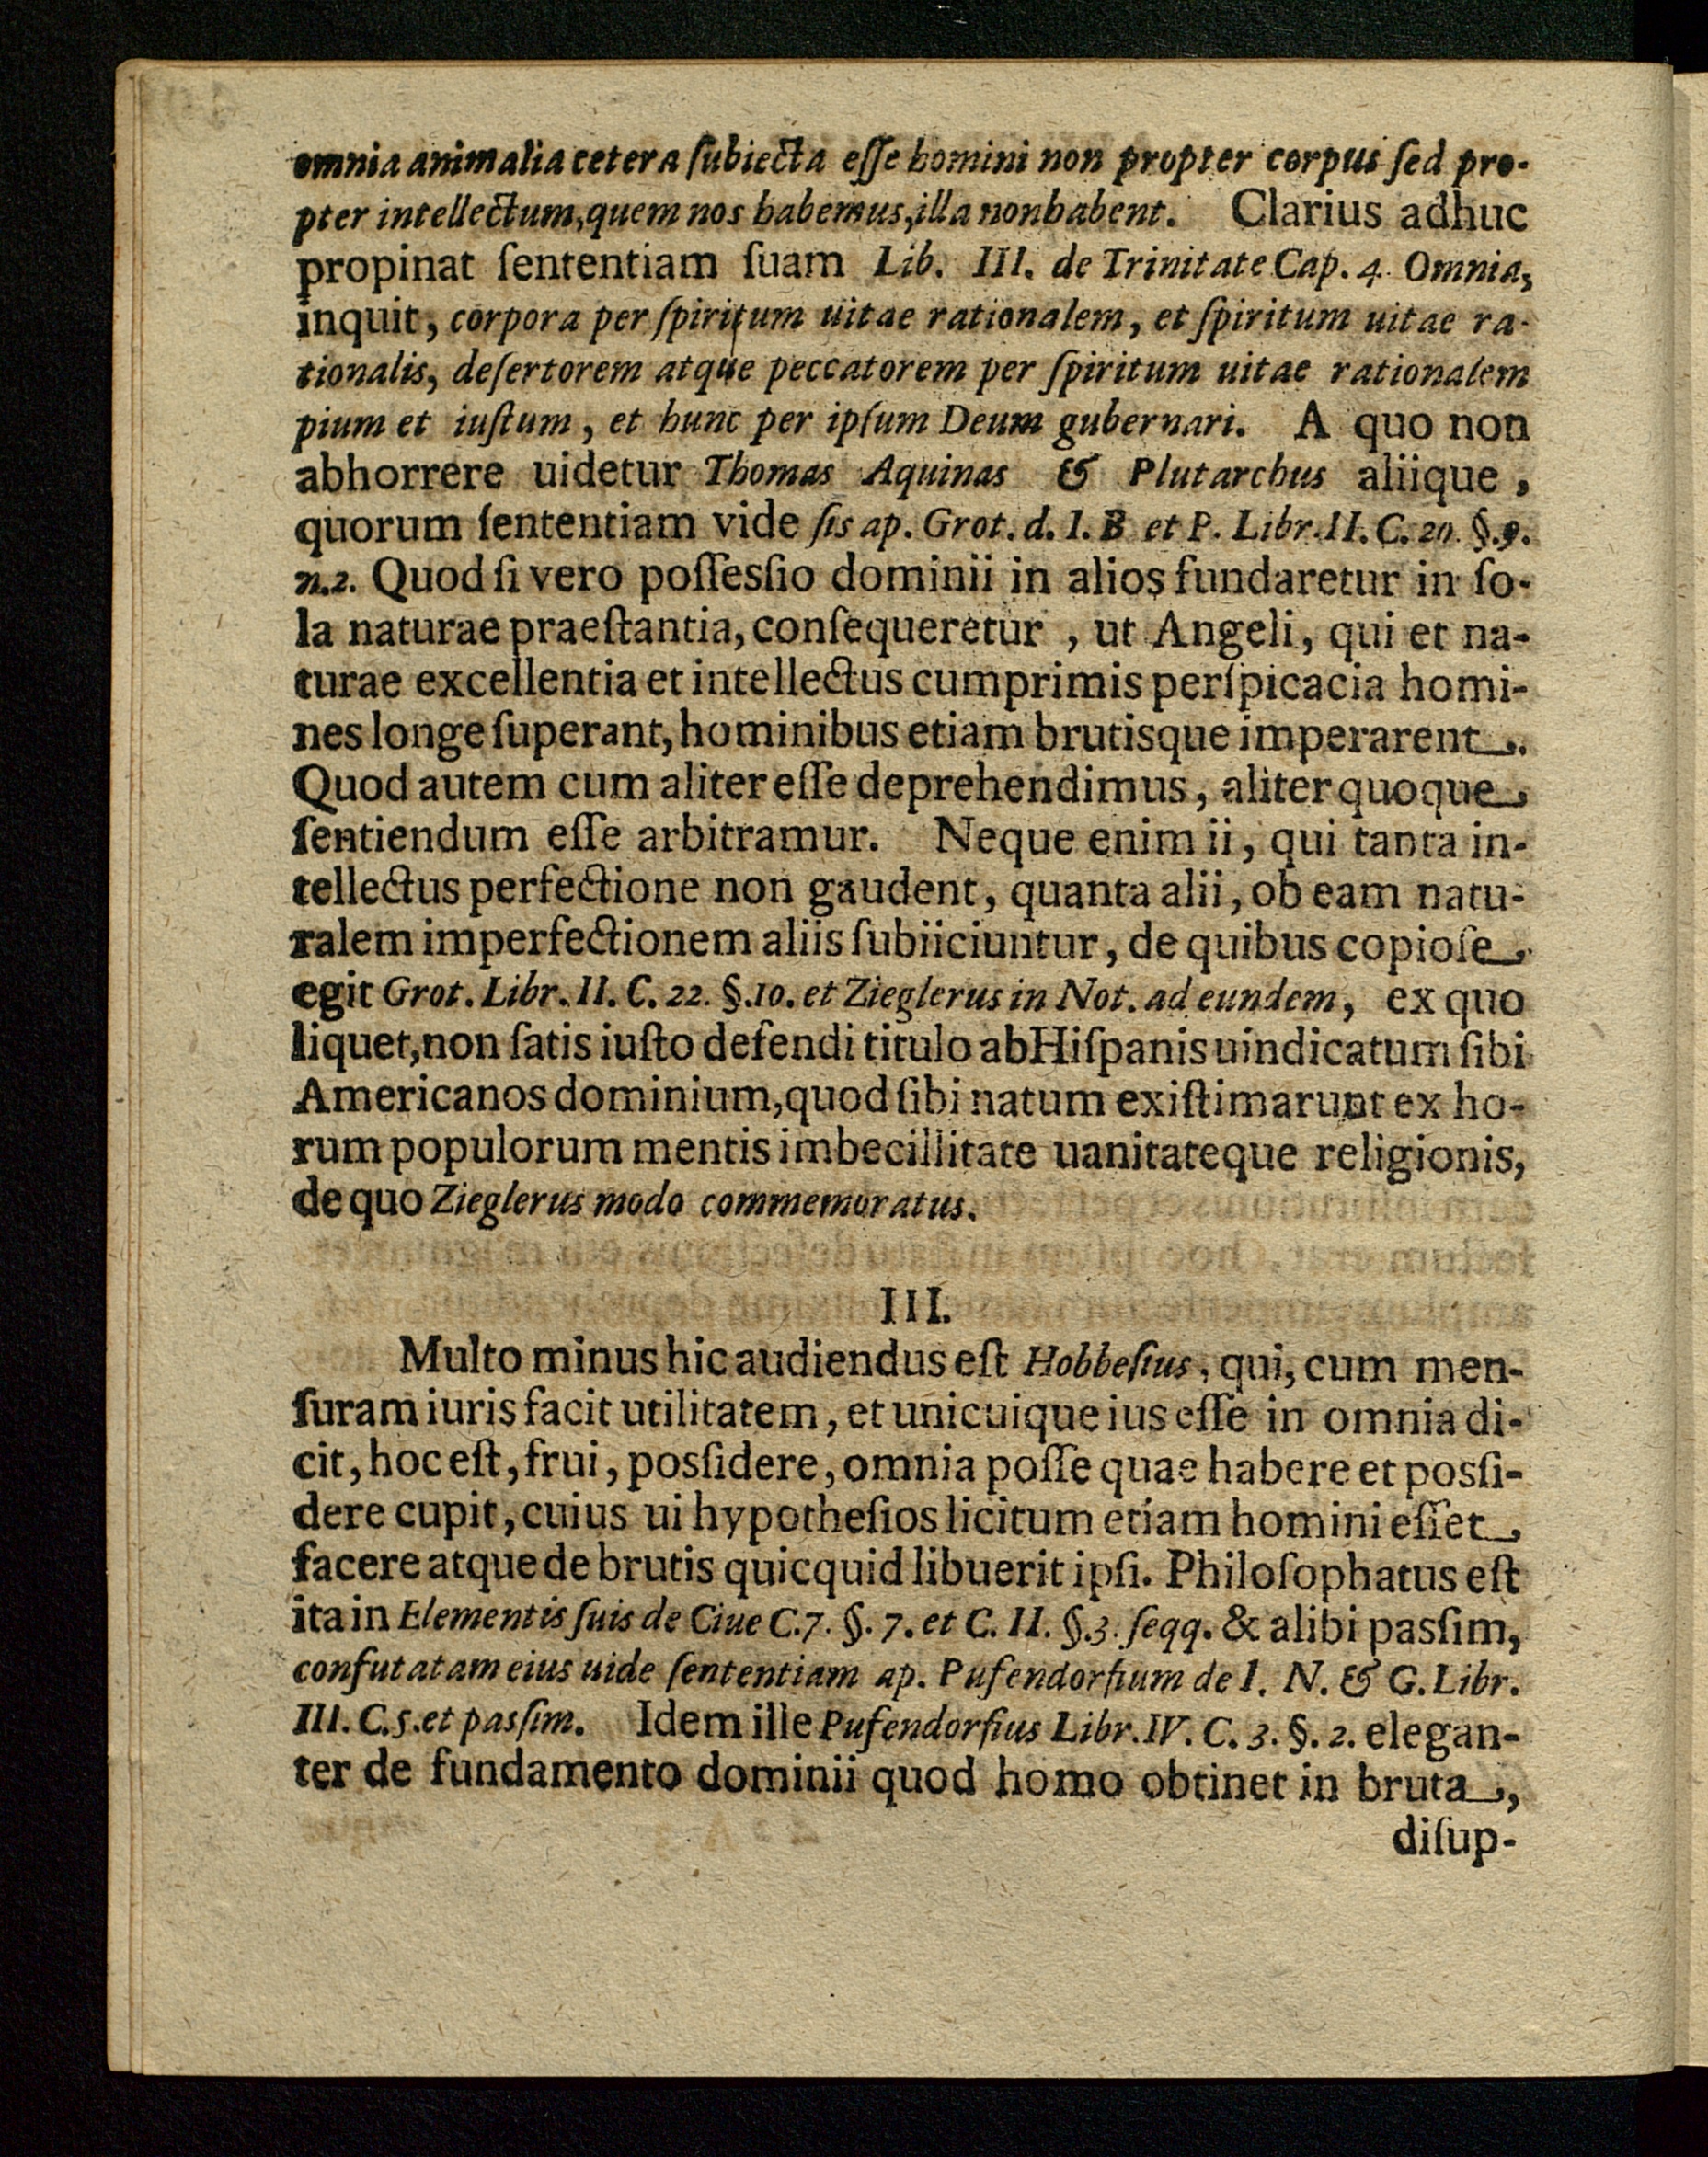 omnia animalia cetera ſubiecta eſſe homini non propter corpus ſed pro-
pter intellectum, quem nos habemus, illa non habent. Clarius adhuc
propinat ſententiam ſuam Lib. III. de Trinitate Cap. 4. Omnia,
inquit, corpora per ſpiritum uitae rationalem, et ſpiritum uitae ra-
tionalis, deſertorem atque peccatorem per ſpiritum uitae rationalem
pium et iuſtum, et hunc per ipſum Deum gubernari. A quo non
abhorrere uidetur Thomas Aquinas & Plutarchus aliique,
quorum ſententiam vide ſis ap. Grot. d. I. B et P. Libr. II. C. 20. §. 9.
n. 2. Quod ſi vero poſſesſio dominii in alios fundaretur in ſo-
la naturae praeſtantia, conſequeretur, ut Angeli, qui et na-
turae excellentia et intellectus cumprimis perſpicacia homi-
nes longe ſuperant, hominibus etiam brutisque imperarent.
Quod autem cum aliter eſſe deprehendimus, aliter quoque
ſentiendum eſſe arbitramur. Neque enim ii, qui tanta in-
tellectus perfectione non gaudent, quanta alii, ob eam natu-
ralem imperfectionem aliis ſubiiciuntur, de quibus copioſe
egit Grot. Libr. II. C. 22. §. 10. et Zieglerus in Not. ad eundem, ex quo
liquet, non ſatis iuſto defendi titulo ab Hiſpanis uindicatum ſibi
Americanos dominium, quod ſibi natum exiſtimarunt ex ho-
rum populorum mentis imbecillitate uanitateque religionis,
de quo Zieglerus modo commemoratus.
III.
Multo minus hic audiendus eſt Hobbeſius, qui, cum men-
ſuram iuris facit utilitatem, et unicuique ius eſſe in omnia di-
cit, hoc eſt, frui, posſidere, omnia poſſe quae habere et posſi-
dere cupit, cuius ui hypotheſios licitum etiam homini eſſet
facere atque de brutis quicquid libuerit ipſi. Philoſophatus eſt
ita in Elementis ſuis de Ciue C. 7. §. 7. et C. II. §. 3. ſeqq. & alibi pasſim,
confutatam eius uide ſententiam ap. Pufendorſium de I. N. & G. Libr.
III. C. 5. et pasſim. Idem ille Pufendorſius Libr. IV. C. 3. §. 2. elegan-
ter de fundamento dominii quod homo obtinet in bruta,
diſup-